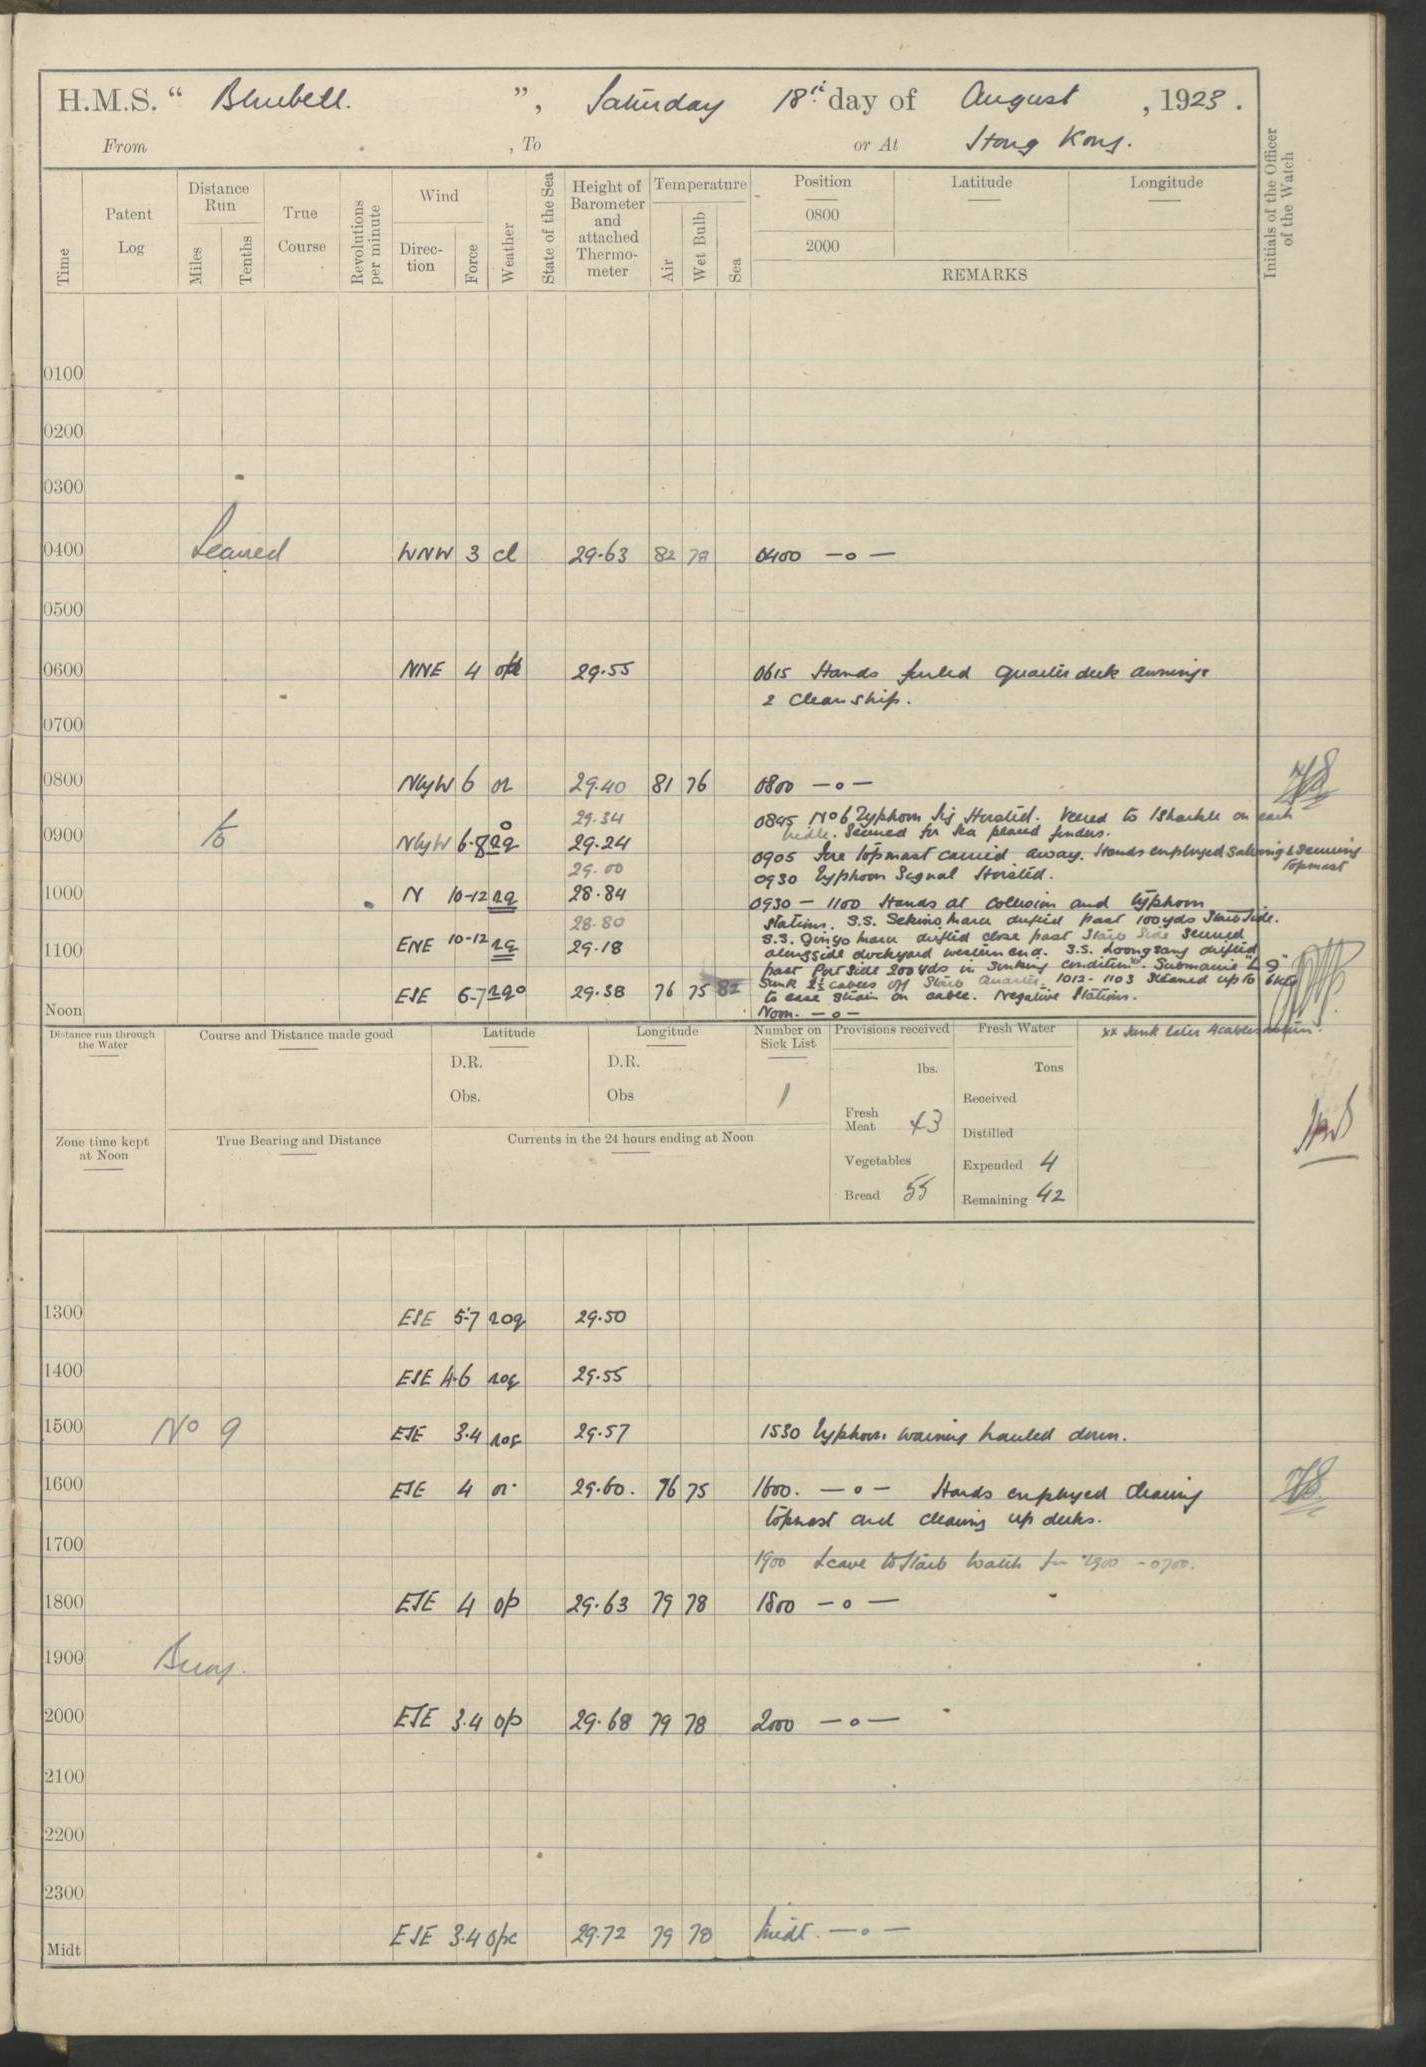 H.M.S. " Bluebell. ", Saturday 18th day of August , 1923 .
From , To or At Hong Kong.
Time
Patent Log
Distance Run
Miles
Tenths
True Course
Revolutions per minute
Wind
Direction
Force
Weather
State of the Sea
Height of Barometer and attached Thermometer
Temperature
Air
Wet Bulb
Sea
Position Latitude Longitude
0800
2000
REMARKS
Initials of the Officer of the Watch
0100
0200
0300
0400 Leaned WNW 3 cl 29.63 82 78 0400 —o—
0500
0600 NNE 4 29.55 0615 Hands furled quarter deck awnings
& Clean ship.
0700
0800 NbyW 6 or 29.40 81 76 0800 —o—
29.34 0845 No 6 Typhoon Sig Hoisted. Veered to 1 Shackle on each
bridle. Secured for sea placed fenders.
0900 to NbyW 6-8 29.24
0905 Fore topmast carried away. Hands employed salving & securing
topmast
29.00 0930 Typhoon Signal Hoisted.
1000 N 10-12 rq 28.84 0930 – 1100 Hands at Collision and typhoon
28.80 Stations. S.S. Sekino Maru drifted past 100 yds Starb Side.
1100 ENE 10-12 rq 29.18 S.S. Ginyo Maru drifted close past Starb Side secured
alongside dockyard western end. S.S. Loongsang drifted
past Port Side 200 yds in sinking condition xx. Submarine "L 9"
Noon ESE 6-7 rqo 29.38 76 75 82 Sunk 2½ cables off Starb Quarter. 1012 - 1103 Steamed up to 6 kts
to ease strain on cable. Negative Stations.
Noon. —o—
xx Sunk later 4 cables astern.
Distance run through the Water
Course and Distance made good
Latitude
D.R.
Obs.
Longitude
D.R.
Obs
Number on Sick List
1
Provisions received
lbs.
Fresh Meat 43
Vegetables
Bread 55
Fresh Water
Tons
Received
Distilled
Expended 4
Remaining 42
Zone time kept at Noon
True Bearing and Distance
Currents in the 24 hours ending at Noon
1300 ESE 5-7 roq 29.50
1400 ESE 4.6 roq 29.55
1500 No 9 ESE 3.4 roq 29.57 1530 Typhoon warning hauled down.
1600 ESE 4 or 29.60. 76 75 1600. —o— Hands employed clearing
topmast and clearing up decks.
1700
1900 Leave to Starb Watch for 1900 - 0700.
1800 ESE 4 op 29.63 79 78 1800 —o—
1900 Buoy.
2000 ESE 3.4 op 29.68 79 78 2000 —o—
2100
2200
2300
Midt ESE 3.4 opc 29.72 79 78 Midt. —o—